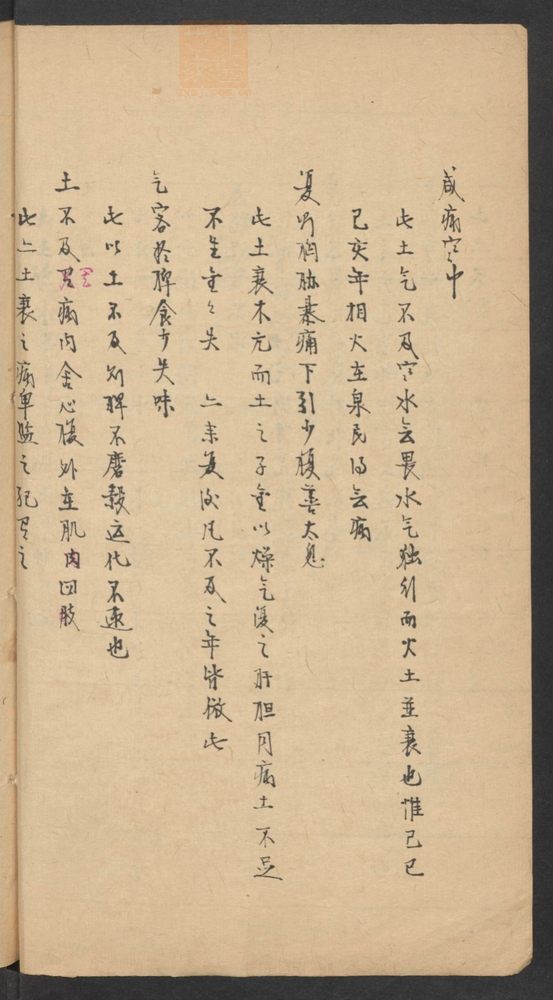 咸病寒中
此土气不及寒水无畏水气独行而火土並衰也惟己巳
己亥年相火在泉民得无病
复则胸胁暴痛下引少腹善太息
此土衰木亢而土之子金以燥气復之肝胆同病土不足
不生金金失 二来复 凡不及之年皆倣此
气客於脾食少失味
此以土不及别脾不磨穀运化不速也
土不及 病内舍心腹外在肌肉四肢
此二土衰之病单 之